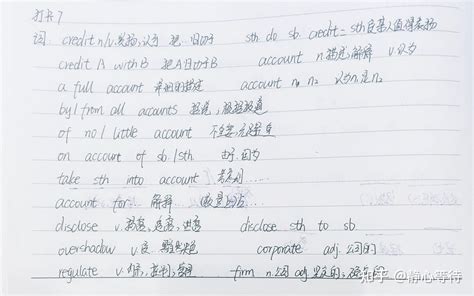 打卡7
词. credit n/v. 表扬, 认为 把…归功于 sth do sb credit = sth 使某人值得表扬
credit A with B 把A归功于B account n 描述, 解释 v. 认为
a full account 详细的描述 account n₁ n₂ 认为n₁是n₂
by/from all accounts 据说,
of no/little account 不重要
on account of sb/sth 由于, 因为
take sth into account 考虑到…
account for 解释
disclose v. disclose sth to sb
overshadow v. 使 corporate adj. 公司的
regulate v. firm n. 公司 adj.
知乎 @静心等待